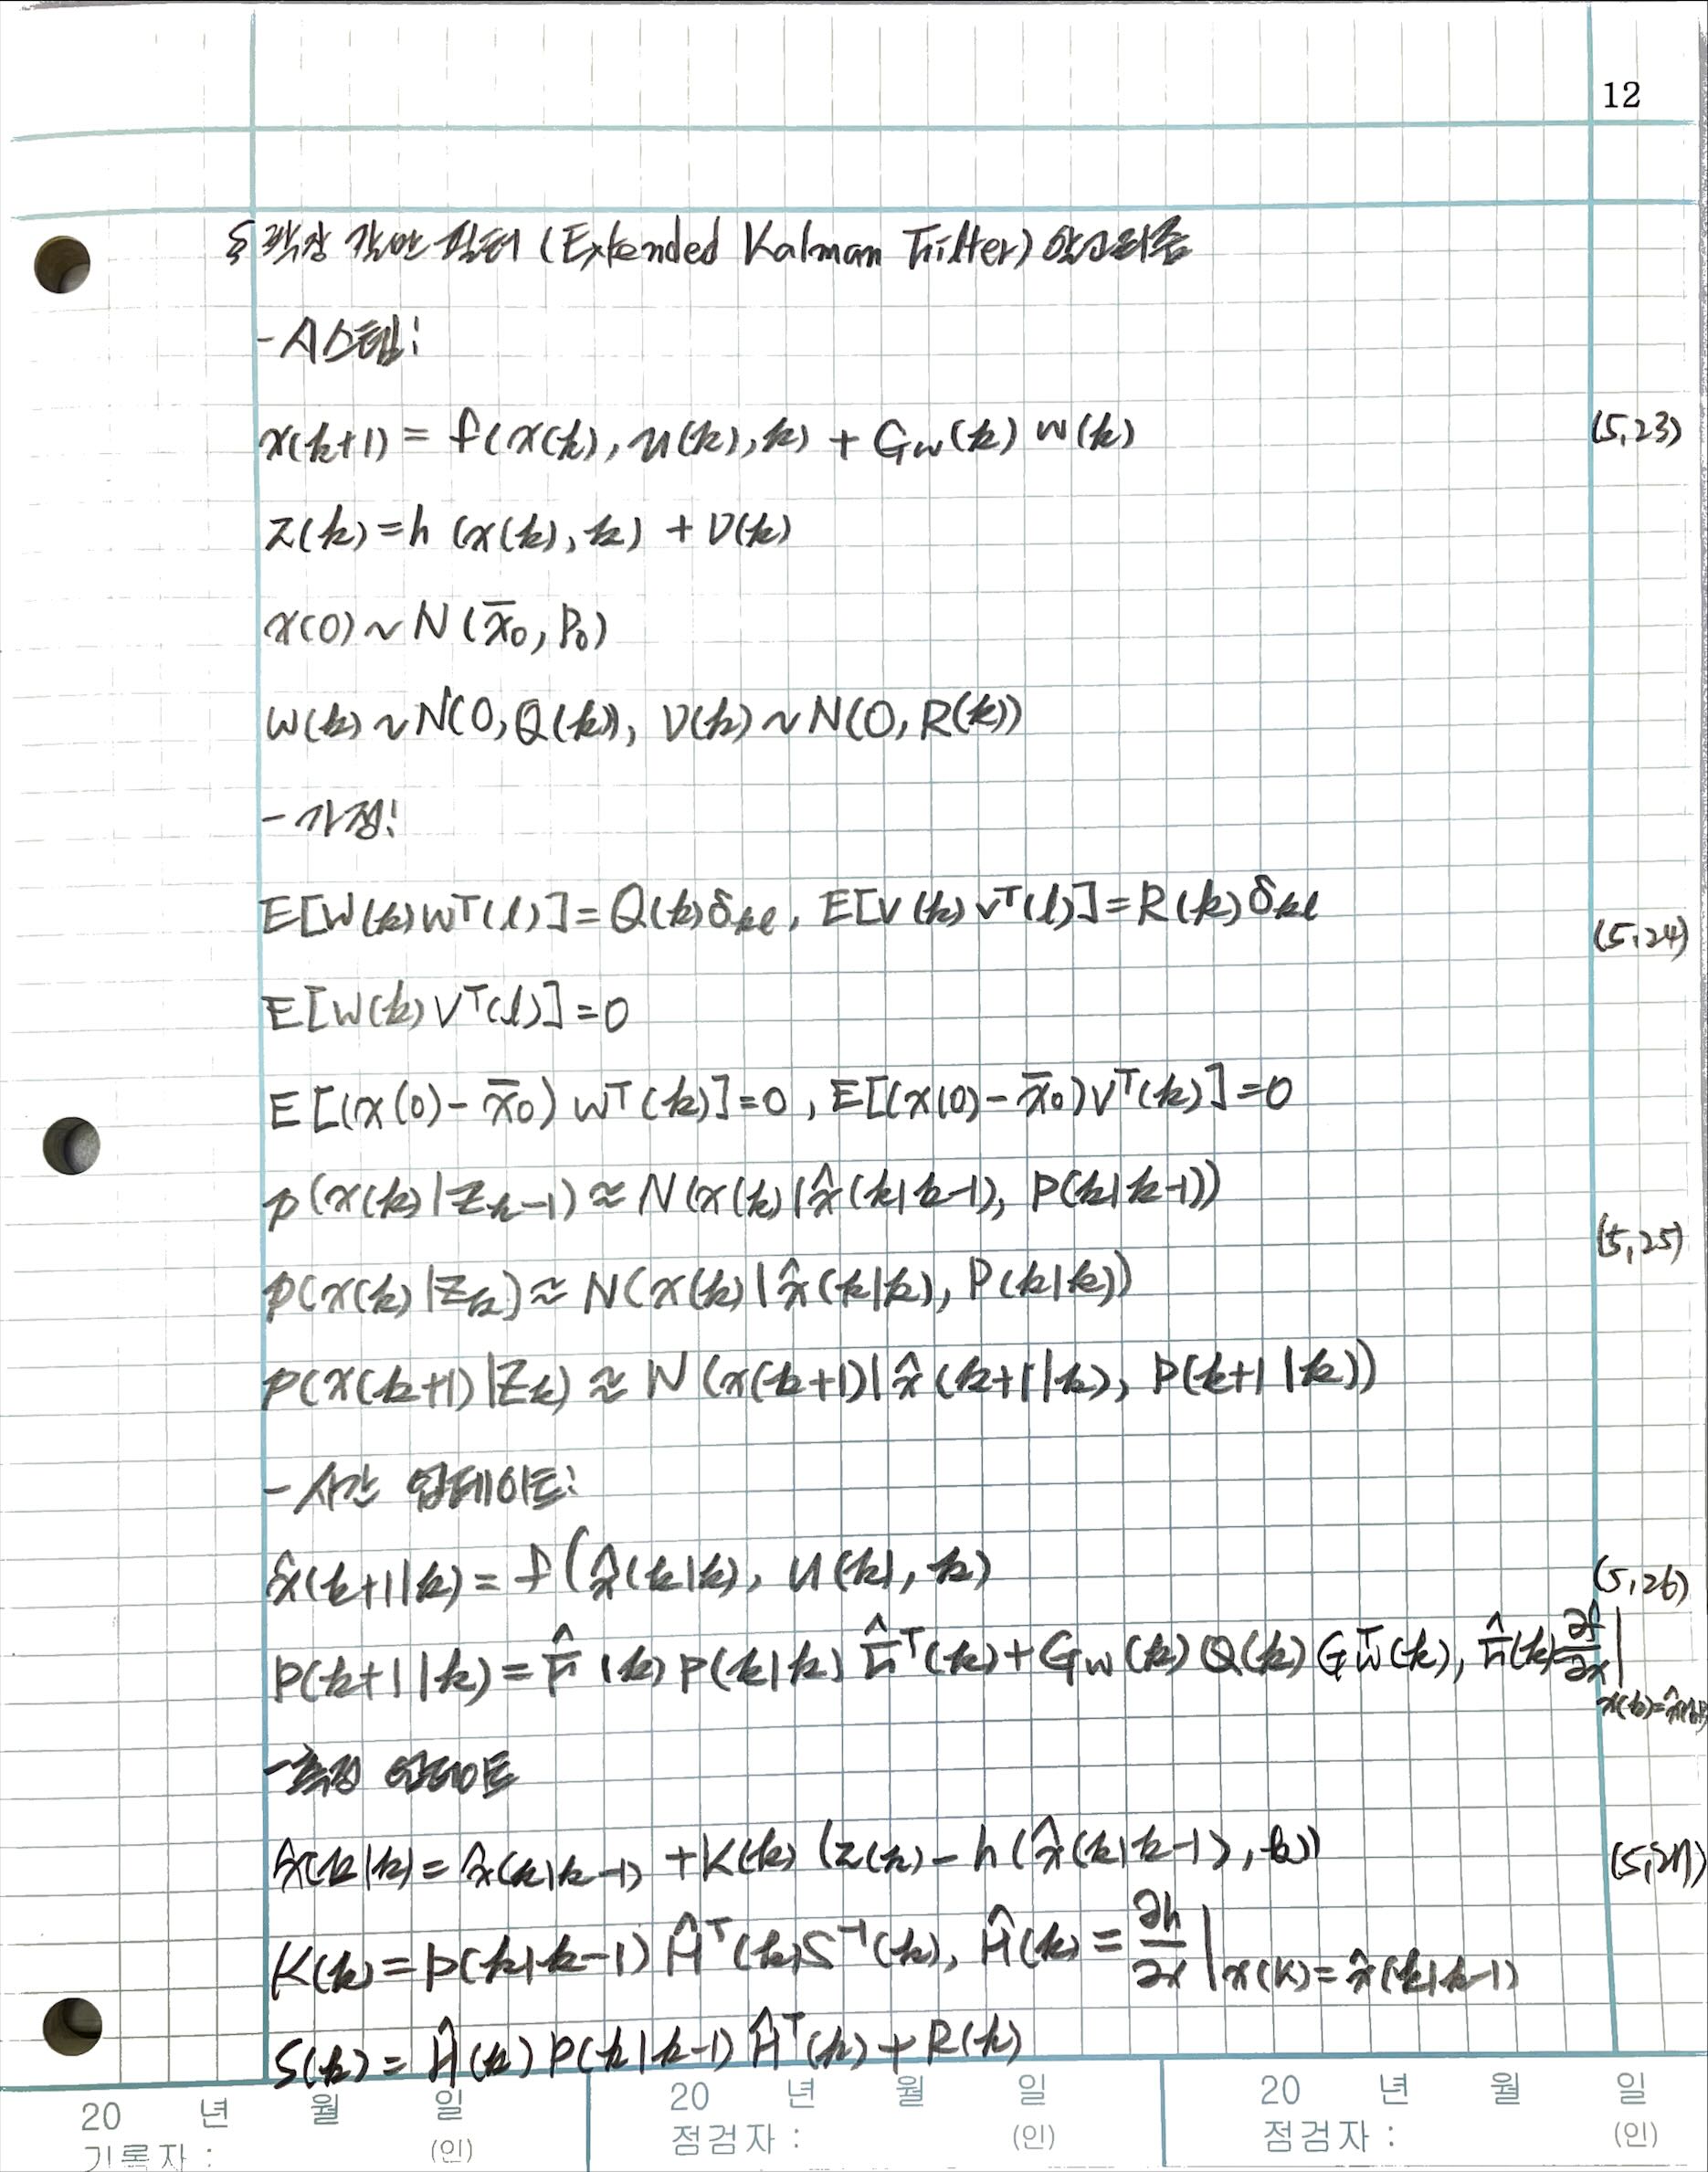 12
§ 확장 칼만 필터 (Extended Kalman Filter) 알고리즘
- 시스템:
x(k+1) = f(x(k), u(k), k) + G_w(k) w(k) (5.23)
z(k) = h (x(k), k) + v(k)
x(0) ~ N(x̄₀, P₀)
w(k) ~ N(0, Q(k)), v(k) ~ N(0, R(k))
- 가정:
E[w(k) wᵀ(l)] = Q(k) δ_kl, E[v(k) vᵀ(l)] = R(k) δ_kl (5.24)
E[w(k) vᵀ(l)] = 0
E[(x(0) - x̄₀) wᵀ(k)] = 0, E[(x(0) - x̄₀) vᵀ(k)] = 0
p(x(k)|Z_k-1) ≈ N(x(k)|x̂(k|k-1), P(k|k-1)) (5.25)
p(x(k)|Z_k) ≈ N(x(k)|x̂(k|k), P(k|k))
p(x(k+1)|Z_k) ≈ N(x(k+1)|x̂(k+1|k), P(k+1|k))
- 시간 업데이트:
x̂(k+1|k) = f(x̂(k|k), u(k), k) (5.26)
P(k+1|k) = F̂(k) P(k|k) F̂ᵀ(k) + G_w(k) Q(k) G_wᵀ(k), F̂(k) = ∂f/∂x | x(k)=x̂(k|k)
- 측정 업데이트
x̂(k|k) = x̂(k|k-1) + K(k) (z(k) - h(x̂(k|k-1), k)) (5.27)
K(k) = P(k|k-1) Ĥᵀ(k) S⁻¹(k), Ĥ(k) = ∂h/∂x | x(k) = x̂(k|k-1)
S(k) = Ĥ(k) P(k|k-1) Ĥᵀ(k) + R(k)
20 년 월 일 20 년 월 일 20 년 월 일
기록자 : (인) 점검자 : (인) 점검자 : (인)